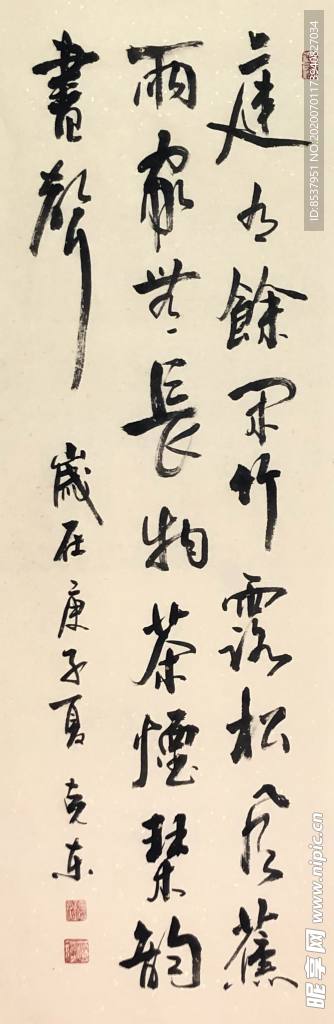 庭有餘閑竹露松風蕉
雨家無長物茶煙琴韵
書聲
歲在庚子夏克東
ID:8537951 NO.20200701173940827034
昵享网 www.nipic.cn